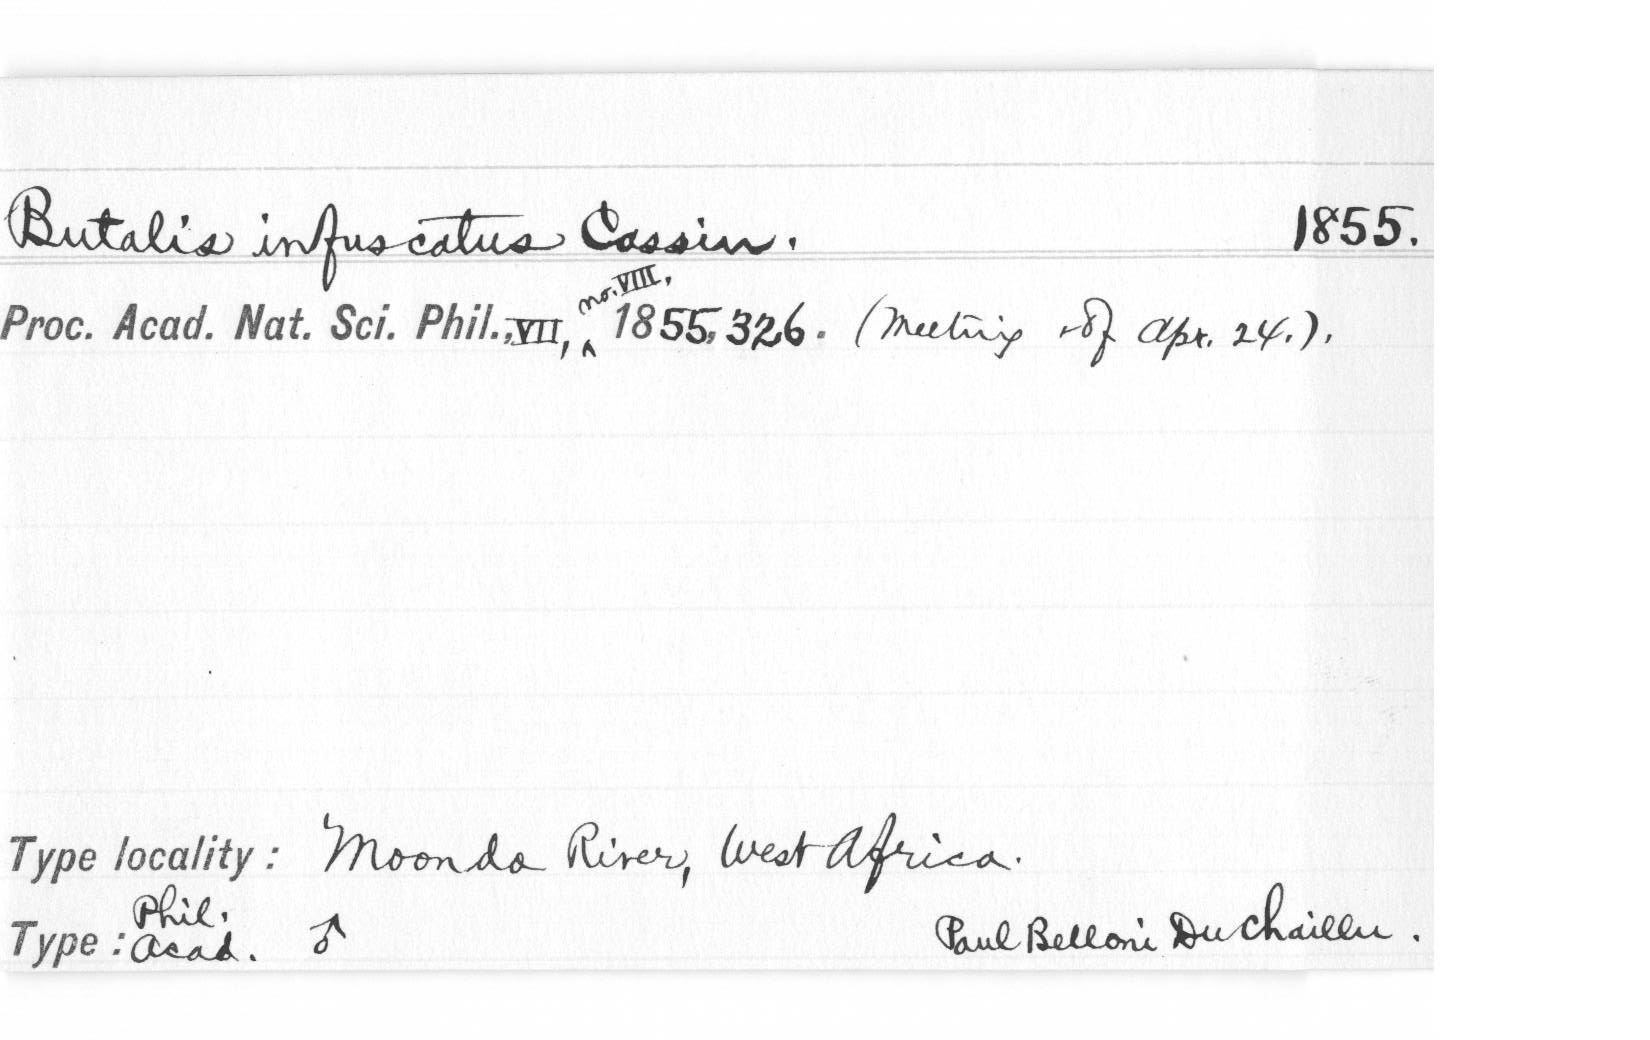 Butalis infuscatus Cassin. 1855.
Proc. Acad. Nat. Sci. Phil., VII, no. VIII, 1855, 326. (Meeting of Apr. 24.).
Type locality: Moonda River, West Africa.
Type: Phil. Acad. ♂ Paul Belloni Du Chaillu.